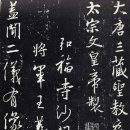 大唐三藏聖教
太宗文皇帝製
弘福寺沙
將軍王羲
蓋聞二儀有像